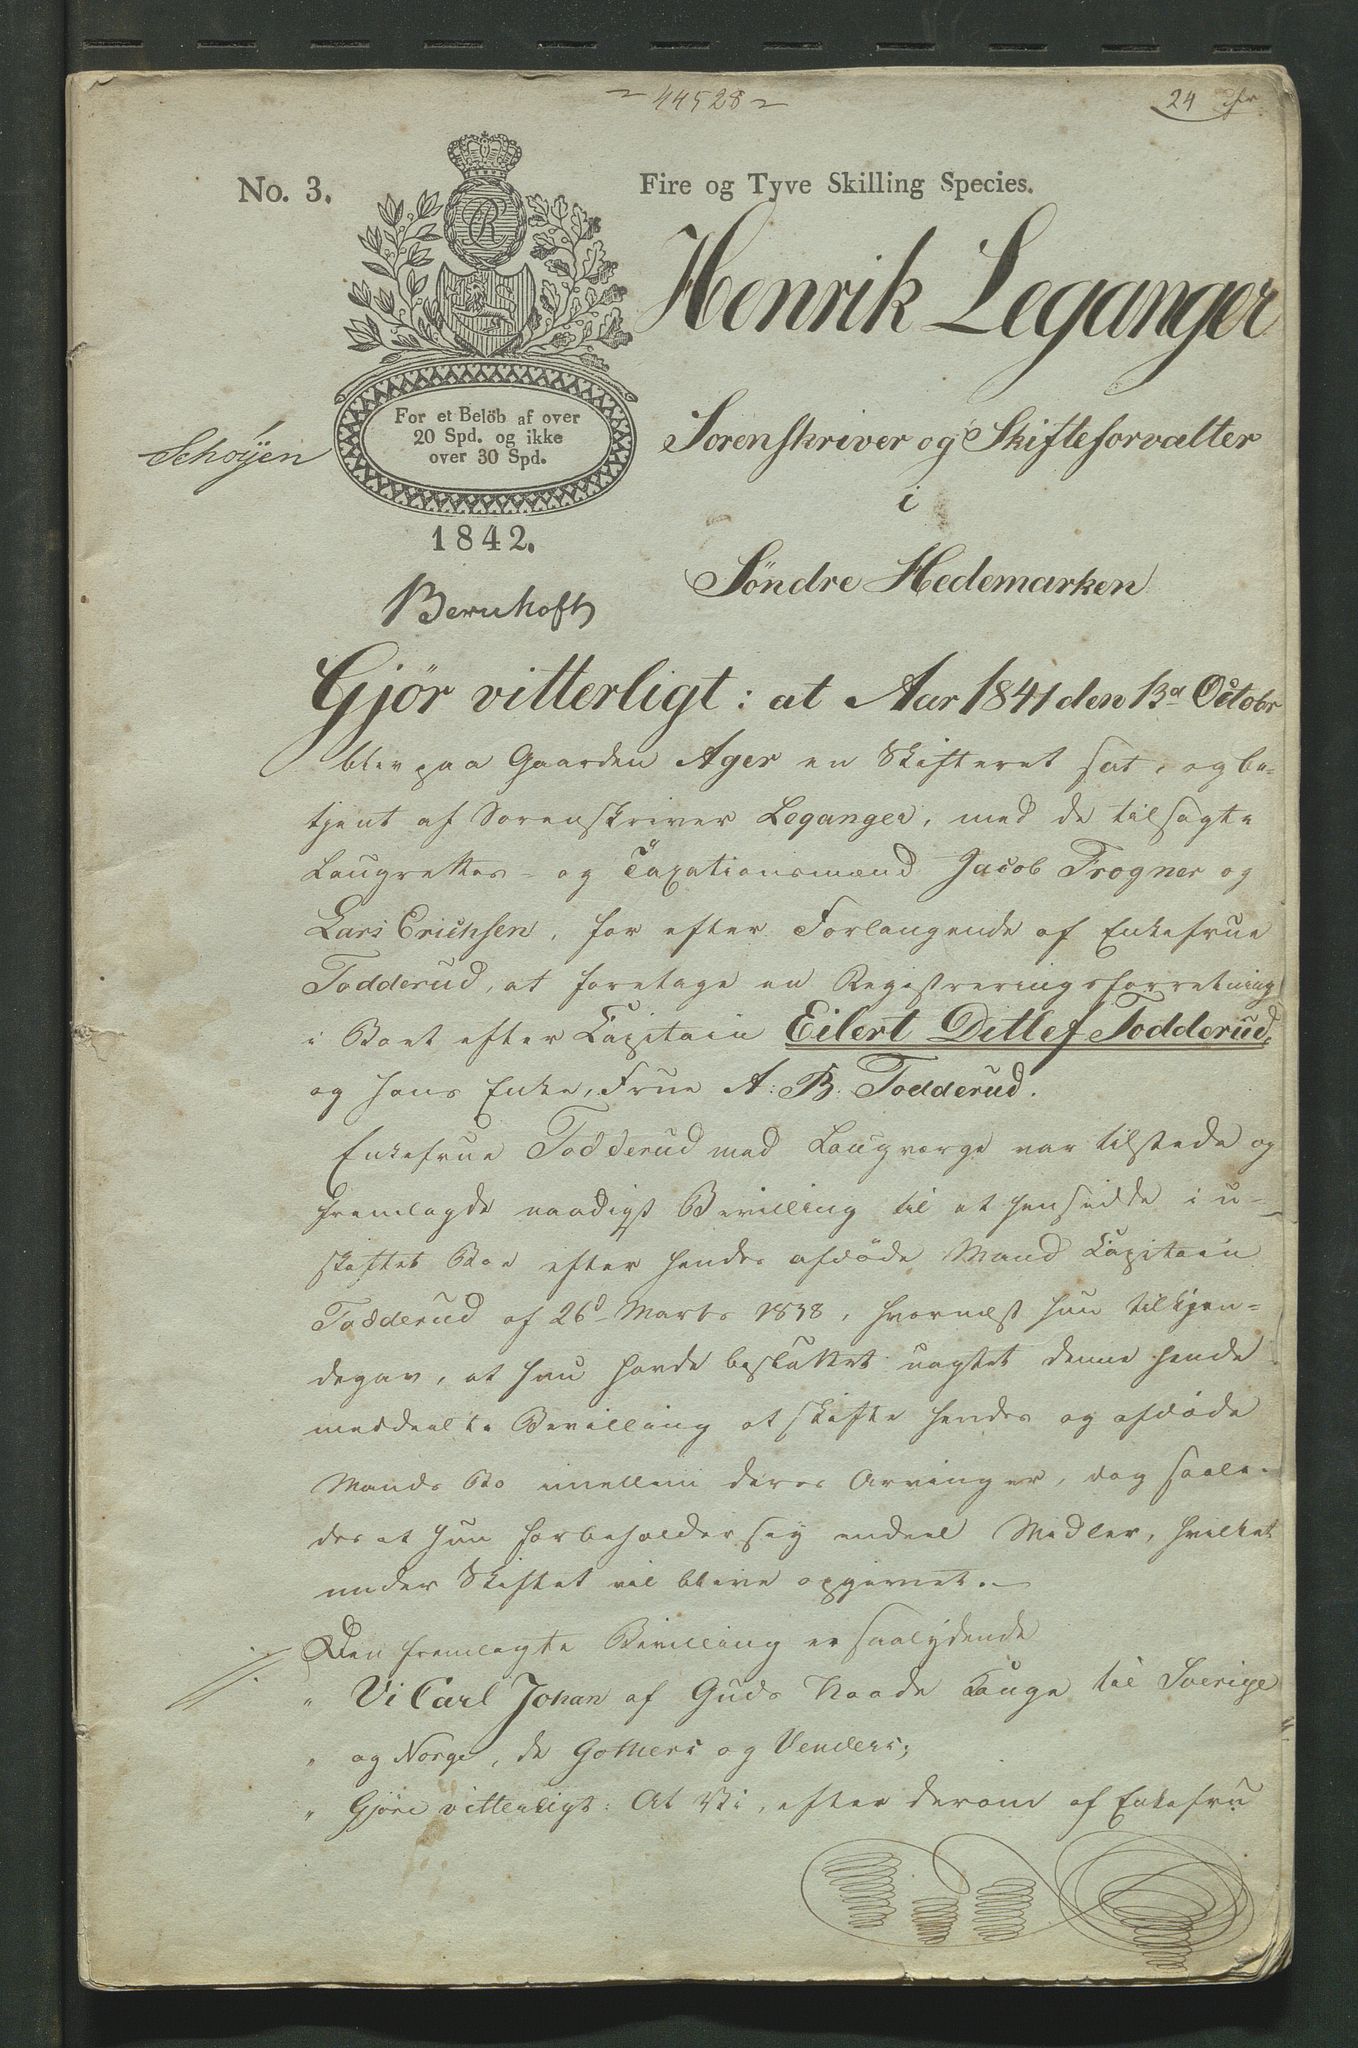 ~ 44528 ~
24 ſs
No. 3.
Fire og Tyve Skilling Species.
Henrik Leganger
For et Belöb af over
20 Spd. og ikke
over 30 Spd.
Schøyen
Sorenskriver og Skifteforvalter
i
1842.
Søndre Hedemarken
Bernhoft
Gjör vitterligt: at Aar 1841 den 13d Octobr
blev paa Gaarden Ager en Skifteret sat, og be-
tjent af Sorenskriver Leganger, med de tilsagte
Laugrettes- og Taxationsmænd Jacob Frogner og
Lars Erichsen, for efter Forlangende af Enkefrue
Todderud, at foretage en Registreringsforretning
i Boet efter Capitain Eilert Ditlef Todderud,
og hans Enke, Frue A: B: Todderud.
Enkefrue Todderud med Laugværge var tilstede og
fremlagde naadigst Bevilling til at hensidde i u-
skiftet Boe efter hendes afdöde Mand Capitain
Todderud af 26d Marts 1838, hvornæst hun tilkjen-
degav, at hun havde besluttet uagtet denne hende
meddeelte Bevilling at skifte hendes og afdöde
Mands Bo imellem deres Arvinger, dog saale-
des at hun forbeholder sig endeel Midler, hvilket
under Skiftet vil blive opgivet.
Den fremlagte Bevilling er saalydende
" Vi Carl Johan af Guds Naade Konge til Sverige
" og Norge, de Gothers og Venders;
" Gjöre vitterligt: At Vi, efter derom af Enkefru